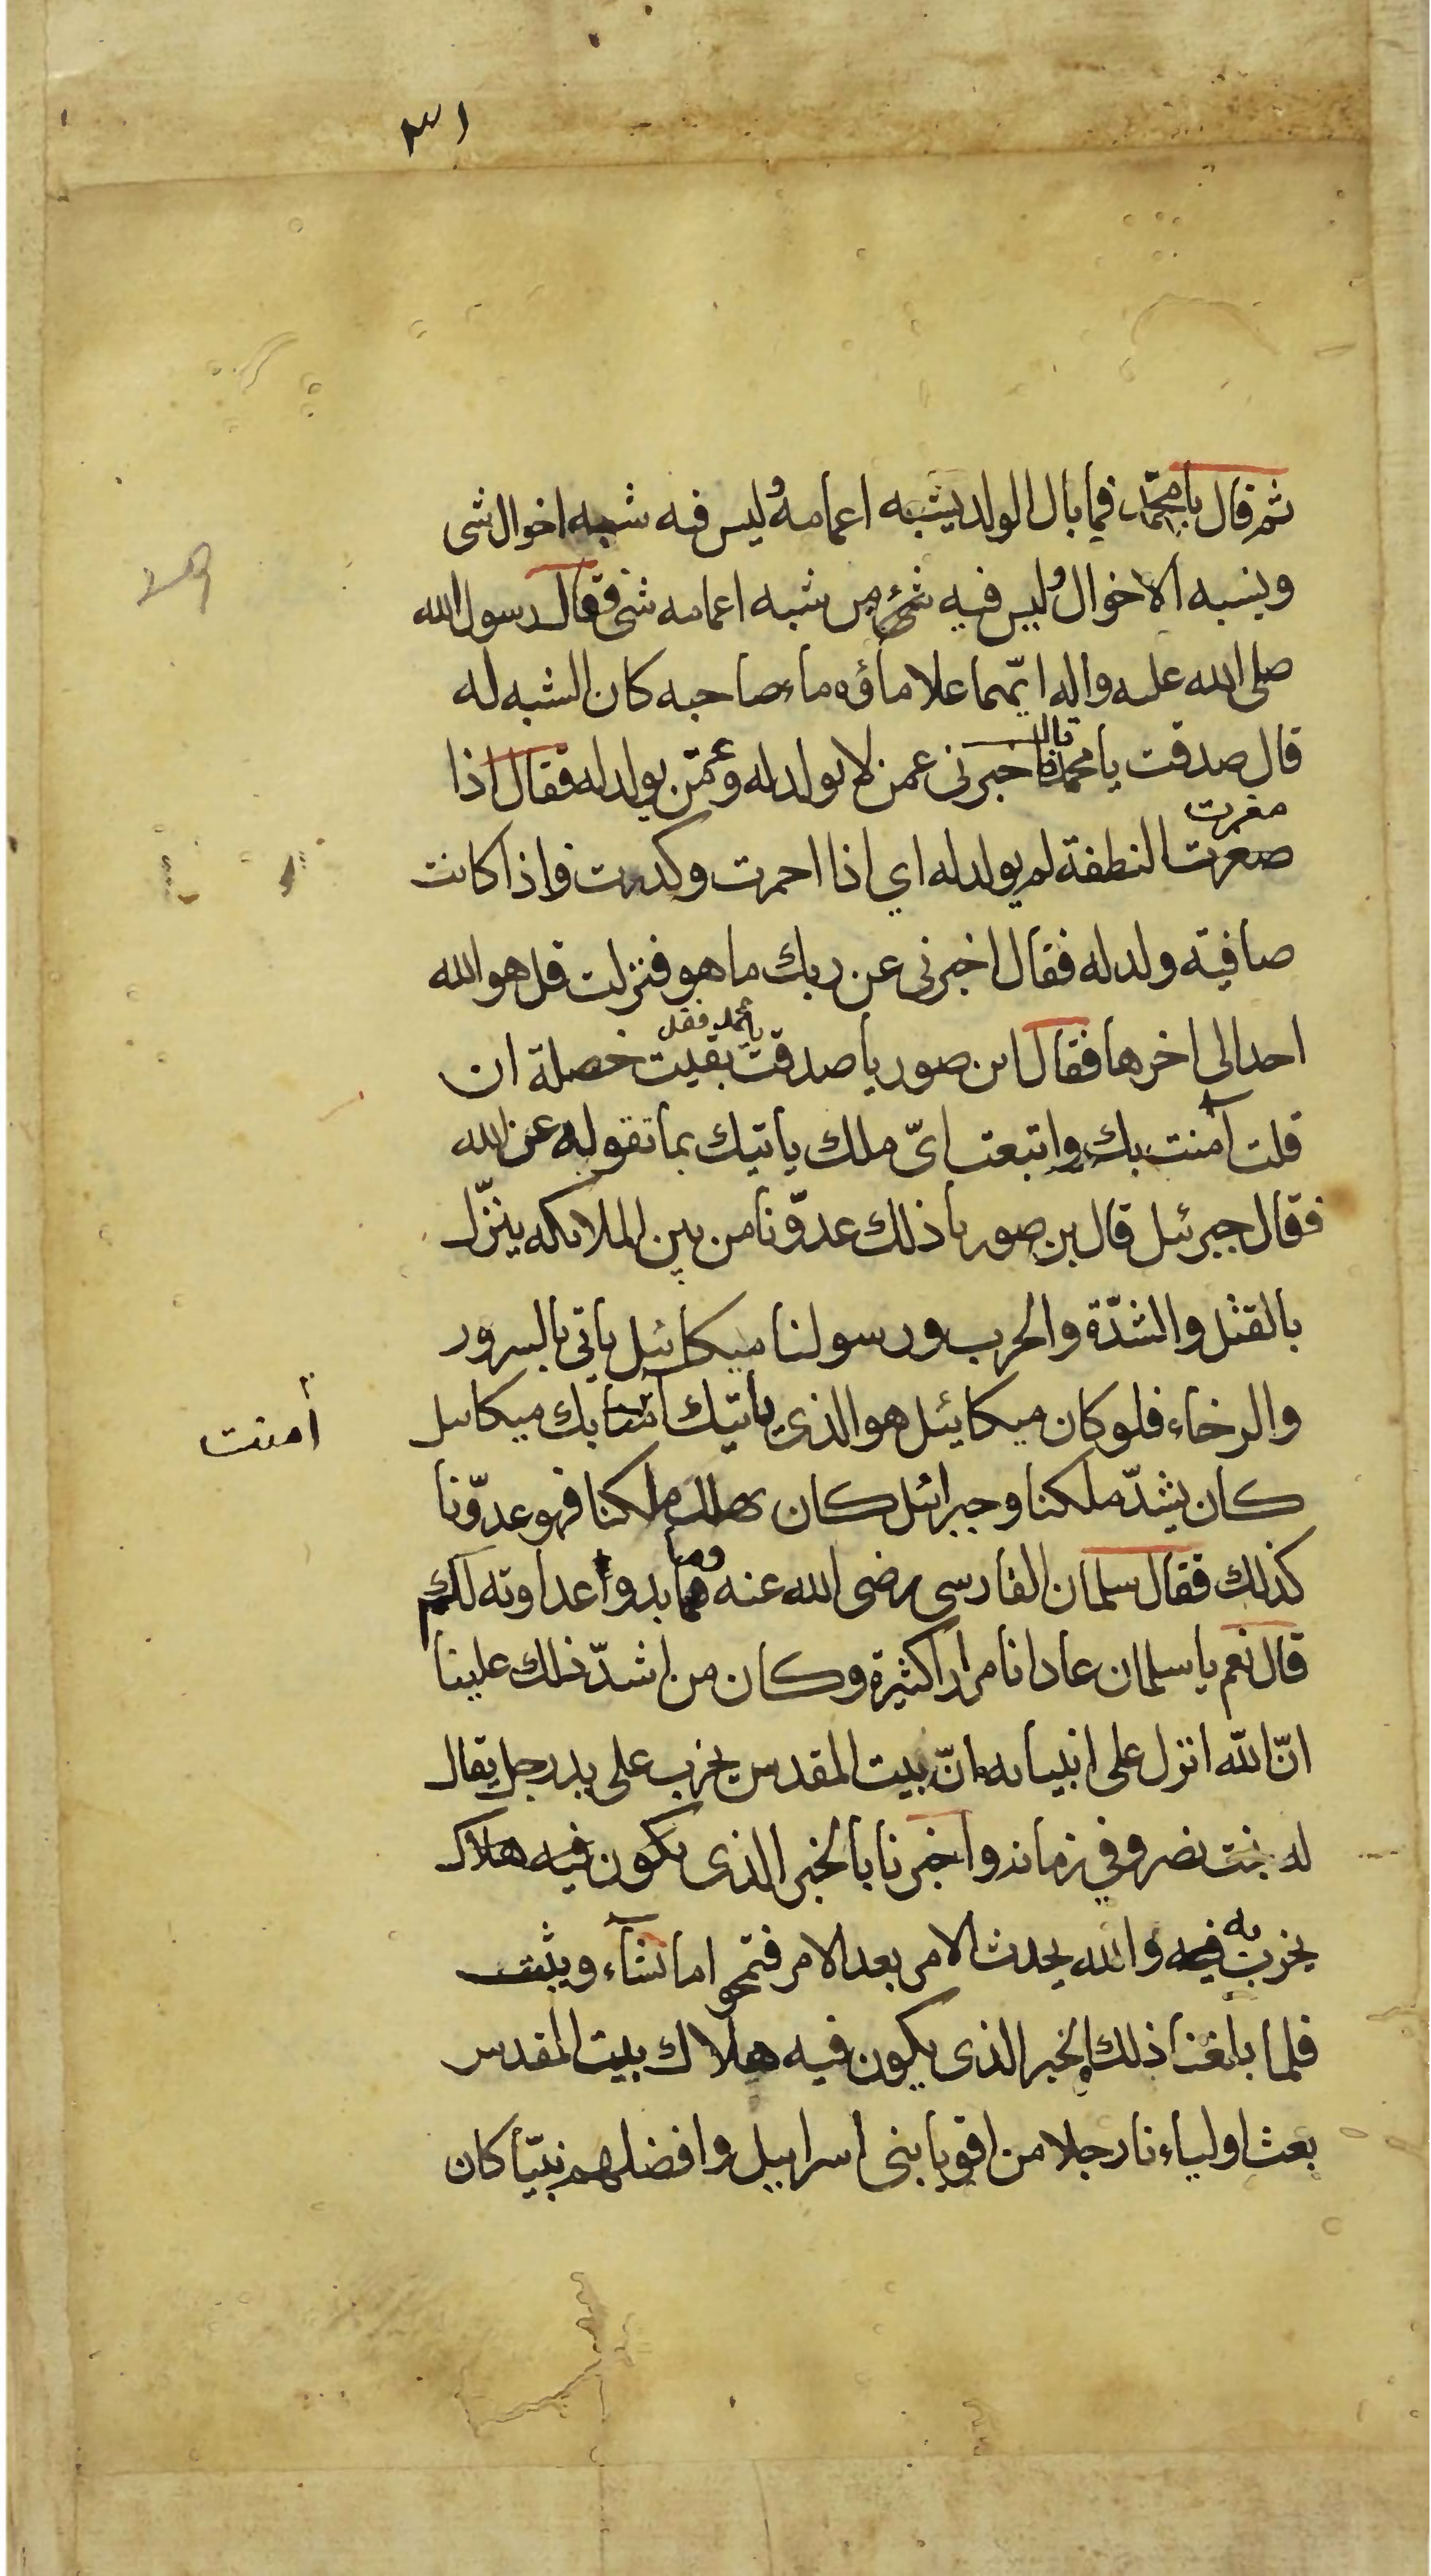 ٣١
ثم قال يا محمّد فما بال الولد يشبه اعمامه وليس فيه شبه اخوال شى
ويشبه الاخوال وليس فيه شئ من شبه اعمامه شى فقال رسول الله
صلى الله عليه واله ايّهما علا ماؤه ماء صاحبه كان الشبه له
قال صدقت يا محمد قال فاخبرنى عمن لا يولد له وعمّن يولد له فقال اذا
مغرت
صعرت النطفة لم يولد له اي اذا احمرت وكدرت واذا كانت
صافية ولد له فقال اخبرنى عن ربك ما هو فنزلت قل هو الله
يا محمد فقل
احد الى اخرها فقال ابن صوريا صدقت بقيت خصلة ان
قلت آمنت بك واتبعت اىّ ملك ياتيك بما تقوله عن الله
فقال جبرئيل قال بن صوريا ذلك عدوّنا من بين الملائكه ينزّل
بالقتل والشدّة والحرب ورسولنا ميكائيل ياتى بالسرور
والرخاء فلو كان ميكائيل هو الذى ياتيك آمنا بك ميكائيل
أمنت
كان يشدّ ملكنا وجبرائيل كان يهلك ملكنا فهو عدوّنا
كذلك فقال سلمان الفارسى رضى الله عنه وما بدوا عداوته لكم
قال نعم يا سلمان عادانا مرارا كثيرة وكان من اشدّ ذلك علينا
انّ الله انزل على انبيائه انّ بيت المقدس يخرب على يد رجل يقال
له بخت نصر وفي زمانه واخبرنا بالخبر الذى يكون فيه هلاك
يخرب به فيه والله يحدث الامر بعد الامر فتمحوا ما تشآء ويثبت
فلما بلغنا ذلك الخبر الذى يكون فيه هلاك بيت المقدس
بعث اولياءنا رجلا من اقويا بنى اسراييل وافضلهم نبيّا كان